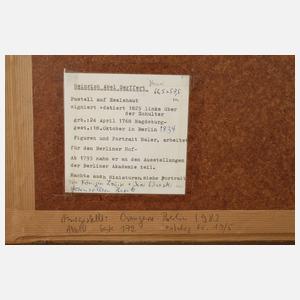 Heinrich Abel Seyffert
66,5 x 53,5
Pastell auf Eselshaut
signiert + datiert 1825 links über
der Schulter
grb.:24 April 1768 Magdeburg-
gest.:18.Oktober in Berlin 1834
Figuren und Portrait Maler, arbeitet
für den Berliner Hof-
Ab 1793 nahm er an den Ausstellungen
der Berliner Akademie teil.
Machte auch Miniaturen, siehe Portrait
der Königin
Ausgestellt: Orangerie Berlin 1983
Abbild. Seite 179 Katalog Nr.